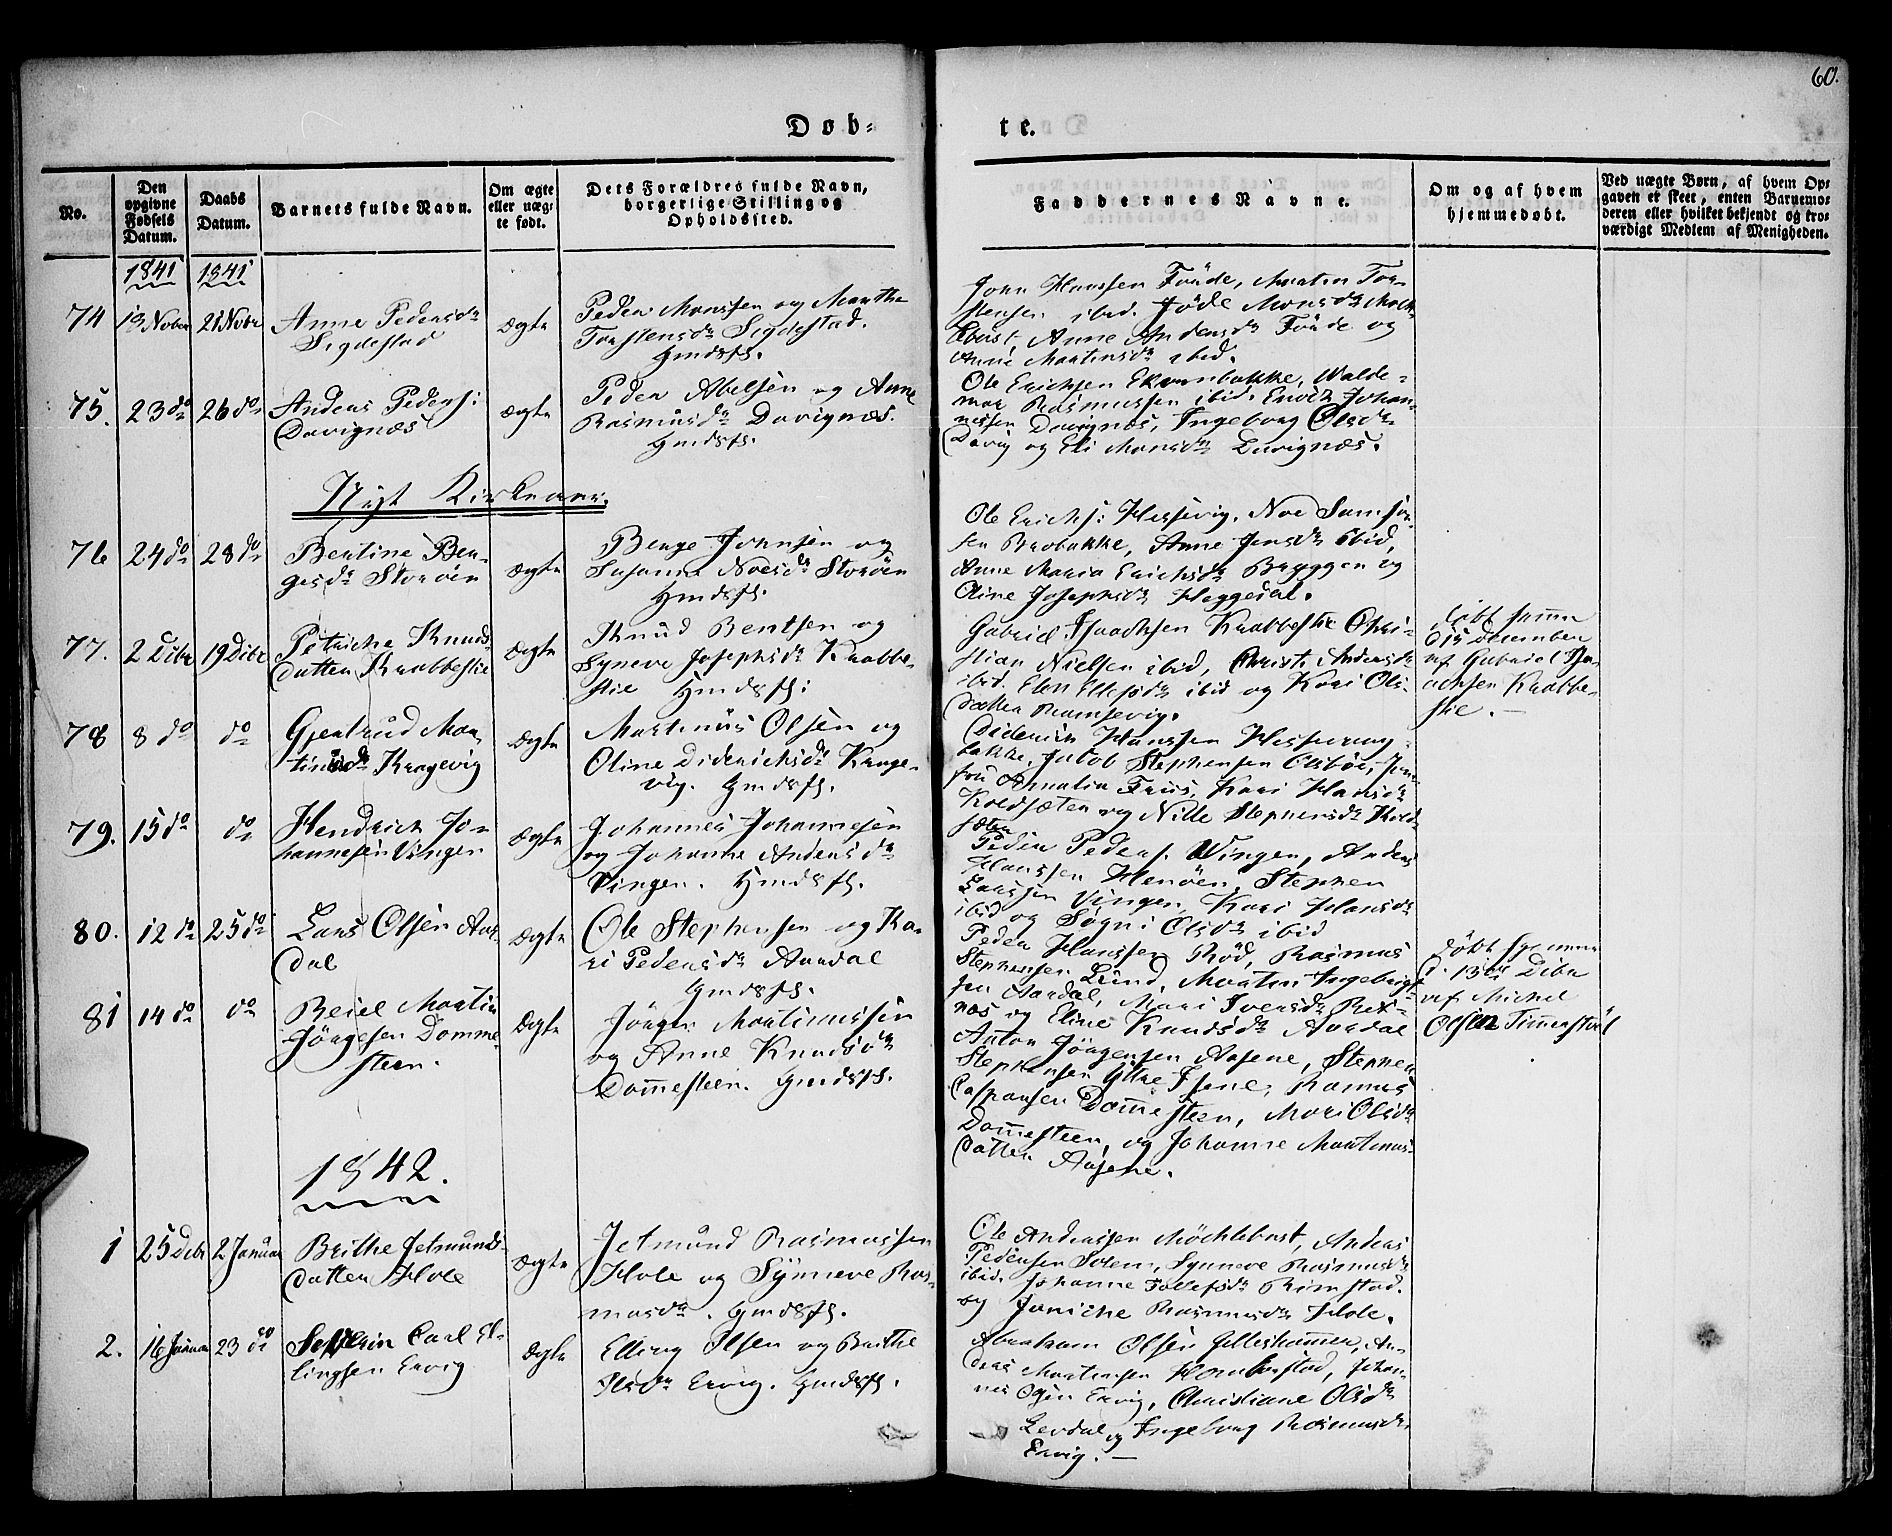 60.
Døb-
te.
No.
Den opgivne Fødsels Datum.
Daabs Datum.
Barnets fulde Navn.
Om ægte eller uægte født.
Dets Forældres fulde Navn, borgerlige Stilling og Opholdssted.
Faddernes Navne.
Om og af hvem hjemmedøbt.
Ved uægte Børn, af hvem Opgaven er skeet, enten Barnemoderen eller hvilket bekjendt og troværdigt Medlem af Menigheden.
1841 1841
74 13 Nobr 21 Nobr Anne Pedersdr
Sigdestad
Ægte
Peder Monssen og Marthe
Torstensdr Sigdestad.
Hmdsf.
Hanssen Förde, Martin Tor-
stensen ibid.
Anne Andersdr Förde og
Anne Martinsdr ibid.
75. 23 do 26 do Anders Peders:
Davignæs
Ægte
Peder Abelsen og Anne
Rasmusdr Davignæs.
Hmdsf.
Ole Erichsen Walde-
mar Rasmussen ibid. Enoch Johan-
nissen Davignæs, Ingeborg Olsdr
Davig og Eli Monsdr Davignæs.
Nyt Kirkeaar.
76 24 do 28 do Bertine Ben-
gesdr Storøen
Ægte
Benge Johnsen og
Susanne Noesdr Storøen
Hmdsf.
Ole Erichs: Hessevig, Noe Samso-
sen Brobakke, Anne Jensdr ibid,
Anne Maria Erichsdr Bryggen og
Oline Josephsdr Heggedal.
77. 2 Dcbr 19 Dcbr Petriche Knuds-
datter Krabbestie
Ægte
Knud Bentsen og
Syneve Josephsdr Krabbe-
stie Hmdsf:
Gabriel Isaachsen Krabbestie Chri-
stian Nielsen ibid, Christi Andersdr
ibid. Elen ibid og Kari Ols-
datter Ramsevig.
döbt hjemme
d 15 December
af Gabriel Isa-
achsen Krabbe-
stie. —
78 8 do do Gjertrud Mar-
tinusdr Kragevig
Ægte
Martinus Olsen og
Oline Diderichsdr Krage-
vig. Hmdsf.
Diderich Hanssen
bakke, Jakob Stephensen Jom-
fru Amalia Friis, Kari Hansdr
Koldsæter og Nille Stephensdr Kold-
sæter
79. 15 do do Hendrich Jo-
hannesen Vingen
Ægte
Johannes Johannesen
og Johanne Andersdr
Vingen. Hmdsf.
Peder Peders. Wingen, Anders
Hanssen Henöen, Stephen
Larssen Vingen, Kari Hansdr
ibid og Søgni Olsdr ibid
80. 12 do 25 do Lars Olsen Aar-
dal
Ægte
Ole Stephensen og Ka-
ri Pedersdr Aardal
Hmdsf.
Peder Hanssen Rød, Rasmus
Stephensen Lund, Martin Ingebrigt-
sen Aardal, Mari Iversdr
næs og Eline Knudsdr Aardal
döbt hjemme
d. 13de Dcbr
af Michel
Olsen
81 14 do do Beiel Martin
Jörgesen Domme-
steen.
Ægte
Jörgen Martinussen
og Anne Knudsdr
Dommesteen. Hmdsf.
Anton Jörgensen Aasene, Stephen
Stephensen Ytre Isene, Rasmus
Caspersen Dommesteen, Mari Olsdr
Dommesteen, og Johanne Martinus-
datter Aasene.
1842.
1 25 Dcbr 2 Januar Brithe Jetmunds-
datter Hole
Ægte
Jetmund Rasmussen
Hole og Synneve Ras-
musdr. Hmdsf.
Ole Anderssen Möchlebost, Anders
Pedersen Solem, Synneve Rasmusdr
ibid. Johanne Rimstad.
og Janiche Rasmusdr Hole.
2. 16 Januar 23 do Severin Carl El-
lingsen Ervig
Ægte
Elling Olsen og Brithe
Olsdr Ervig. Hmdsf.
Abraham Olsen An-
ders Martinsen Johan-
nes Ervig, Christiane Olsdr
Levdal og Ingeborg Rasmusdr
Ervig. —